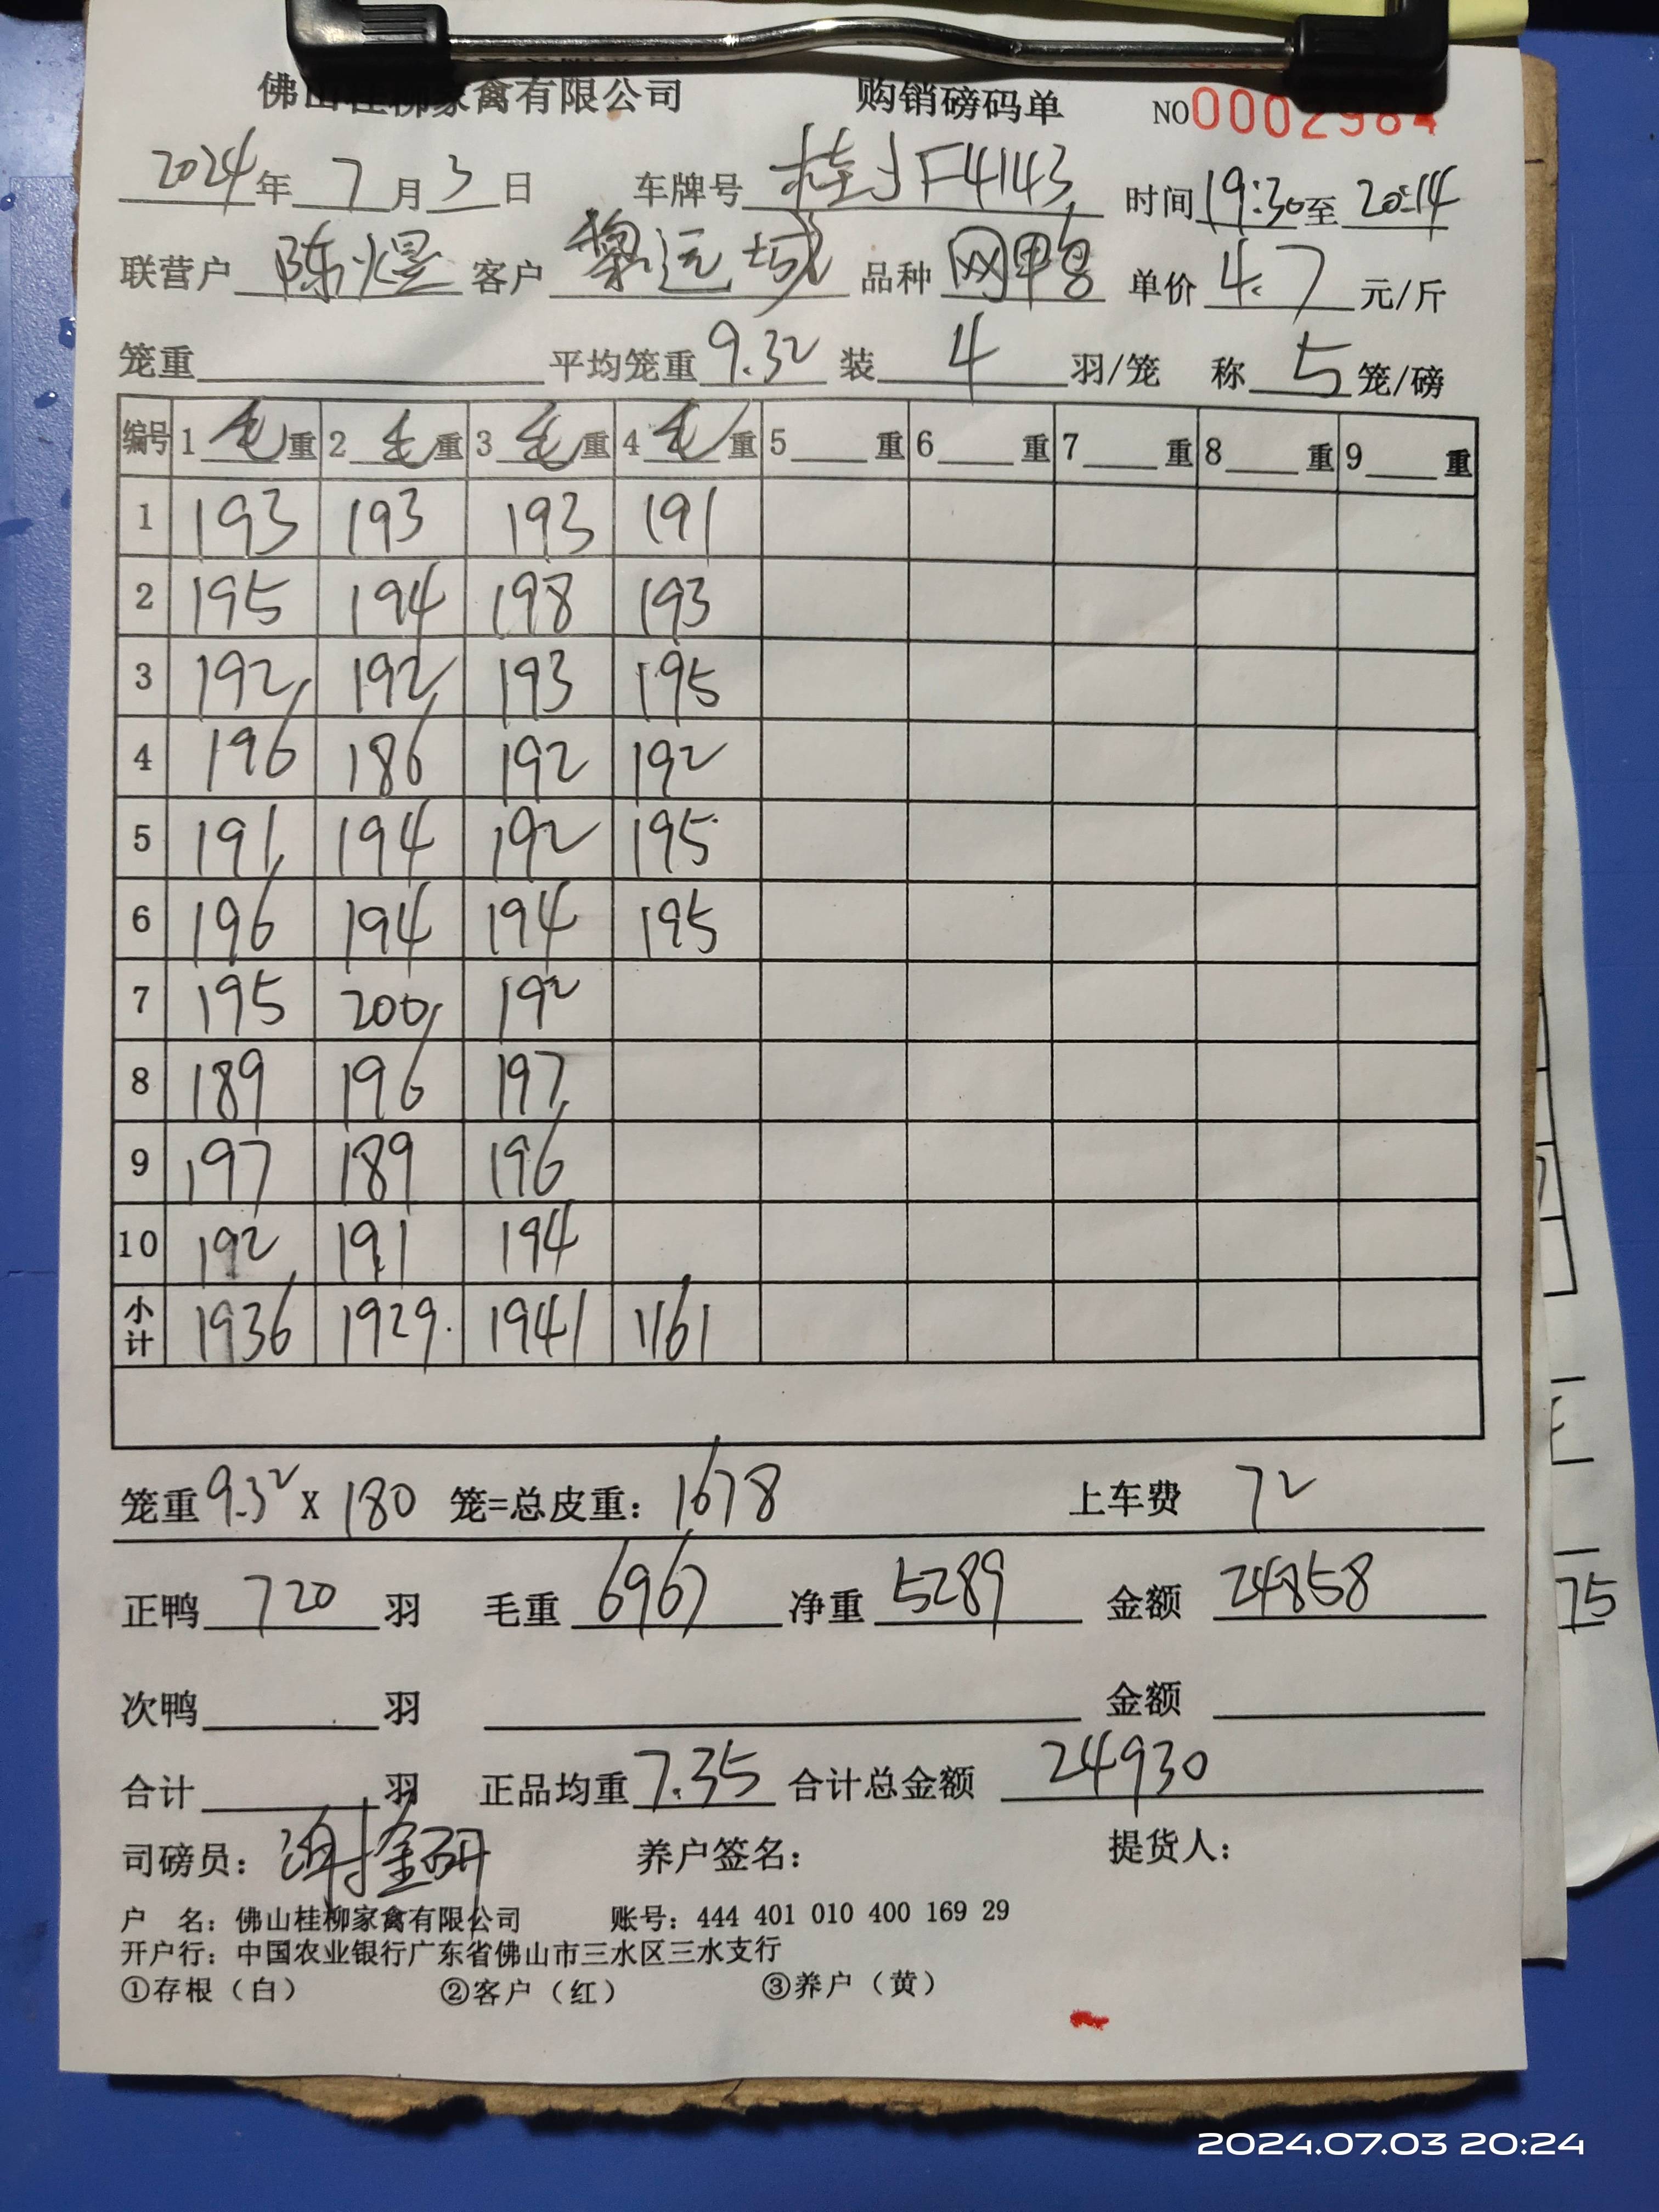 佛山桂柳家禽有限公司 购销磅码单 NO 0002984
2024年 7月 3日 车牌号 桂JF4143 时间 19:30至 20:14
联营户 陈煜 客户 黎远城 品种 网鸭 单价 4.7 元/斤
笼重 平均笼重 9.32 装 4 羽/笼 称 5 笼/磅
编号 1 毛重 2 毛重 3 毛重 4 毛重 5 重 6 重 7 重 8 重 9 重
1 193 193 193 191
2 195 194 198 193
3 192 192 193 195
4 196 186 192 192
5 191 194 192 195
6 196 194 194 195
7 195 200 192
8 189 196 197
9 197 189 196
10 192 191 194
小计 1936 1929. 1941 1161
笼重 9.32 X 180 笼=总皮重：1678 上车费 72
正鸭 720 羽 毛重 6967 净重 5289 金额 24858
次鸭 羽 金额
合计 羽 正品均重 7.35 合计总金额 24930
司磅员： 养户签名： 提货人：
户 名：佛山桂柳家禽有限公司 账号：444 401 010 400 169 29
开户行：中国农业银行广东省佛山市三水区三水支行
①存根（白） ②客户（红） ③养户（黄）
75
2024.07.03 20:24